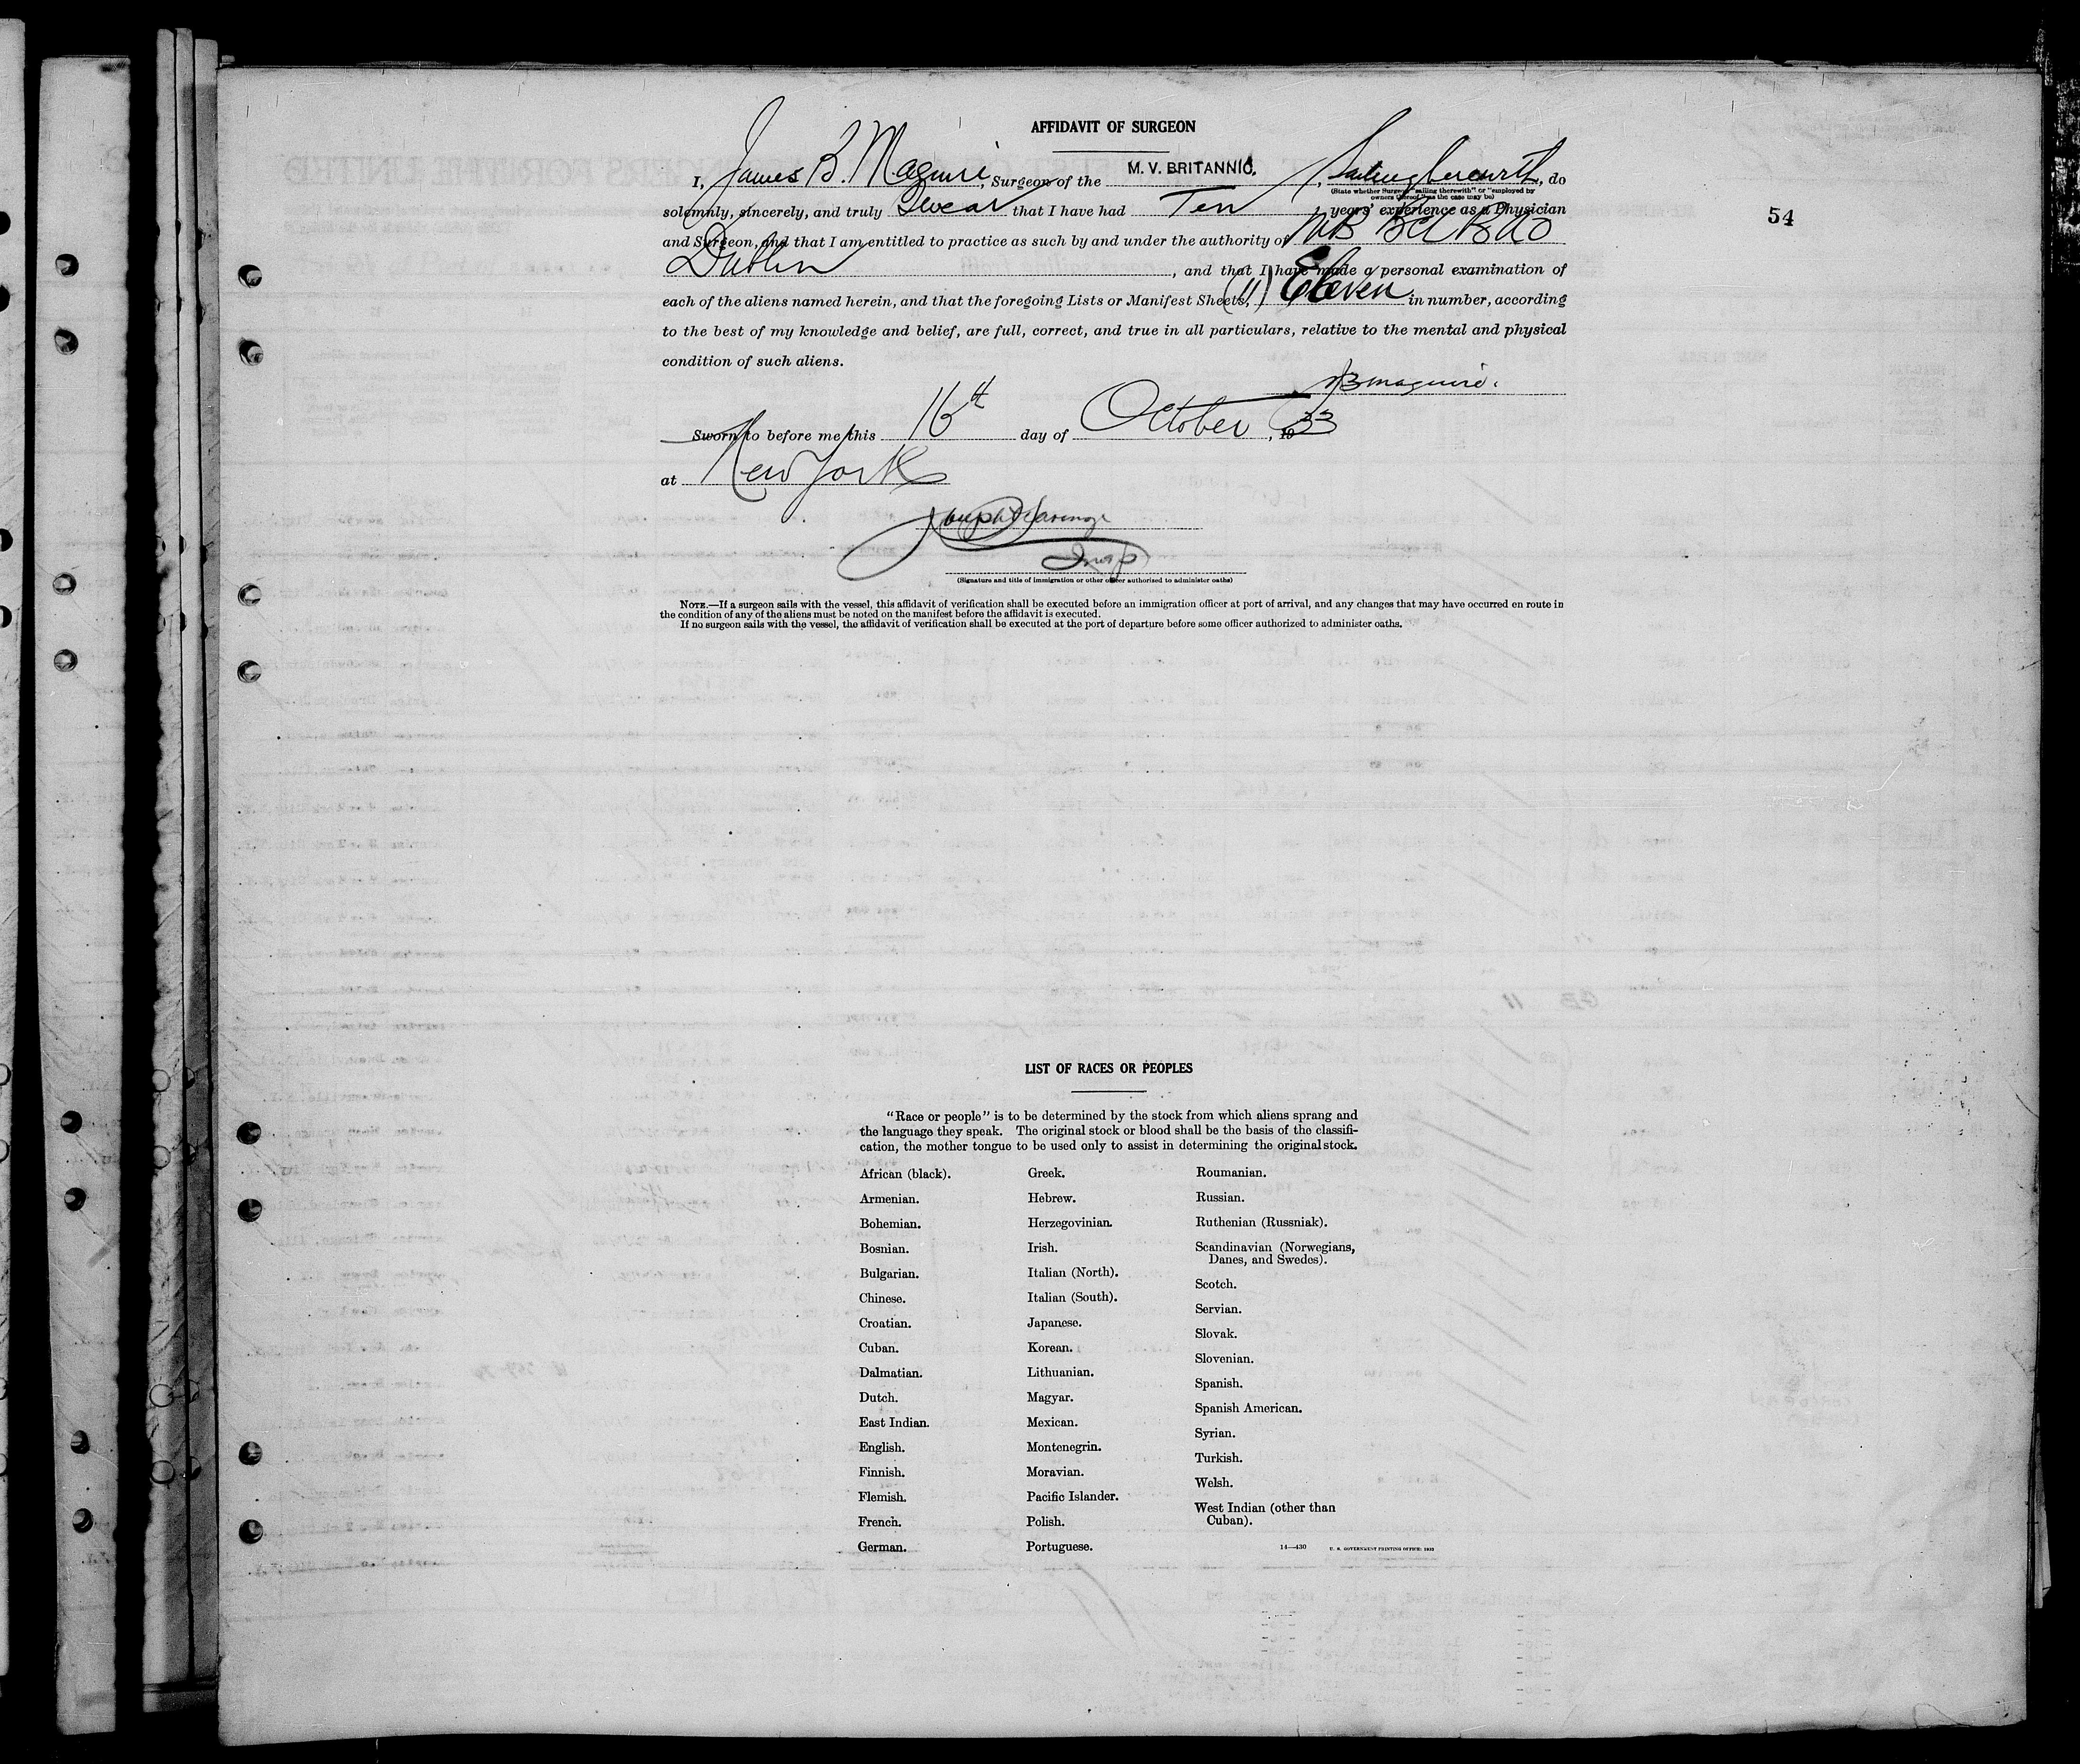 AFFIDAVIT OF SURGEON
I, James B. Maguire, Surgeon of the M. V. BRITANNIC, Sailing therewith, do
(State whether Surgeon "sailing therewith" or "employed by
owners thereof," as the case may be)
solemnly, sincerely, and truly Swear that I have had Ten years' experience as a Physician
54
and Surgeon, and that I am entitled to practice as such by and under the authority of MB BCh BAO
Dublin, and that I have made a personal examination of
each of the aliens named herein, and that the foregoing Lists or Manifest Sheets, (11) Eleven in number, according
to the best of my knowledge and belief, are full, correct, and true in all particulars, relative to the mental and physical
condition of such aliens.
JB Maguire.
Sworn to before me this 16th day of October, 1933
at New York
Joseph
Insp
(Signature and title of immigration or other officer authorized to administer oaths)
NOTE.—If a surgeon sails with the vessel, this affidavit of verification shall be executed before an immigration officer at port of arrival, and any changes that may have occurred en route in
the condition of any of the aliens must be noted on the manifest before the affidavit is executed.
If no surgeon sails with the vessel, the affidavit of verification shall be executed at the port of departure before some officer authorized to administer oaths.
LIST OF RACES OR PEOPLES
"Race or people" is to be determined by the stock from which aliens sprang and
the language they speak. The original stock or blood shall be the basis of the classifi-
cation, the mother tongue to be used only to assist in determining the original stock.
African (black).
Armenian.
Bohemian.
Bosnian.
Bulgarian.
Chinese.
Croatian.
Cuban.
Dalmatian.
Dutch.
East Indian.
English.
Finnish.
Flemish.
French.
German.
Greek.
Hebrew.
Herzegovinian.
Irish.
Italian (North).
Italian (South).
Japanese.
Korean.
Lithuanian.
Magyar.
Mexican.
Montenegrin.
Moravian.
Pacific Islander.
Polish.
Portuguese.
Roumanian.
Russian.
Ruthenian (Russniak).
Scandinavian (Norwegians,
Danes, and Swedes).
Scotch.
Servian.
Slovak.
Slovenian.
Spanish.
Spanish American.
Syrian.
Turkish.
Welsh.
West Indian (other than
Cuban).
14—430 U. S. GOVERNMENT PRINTING OFFICE: 1932